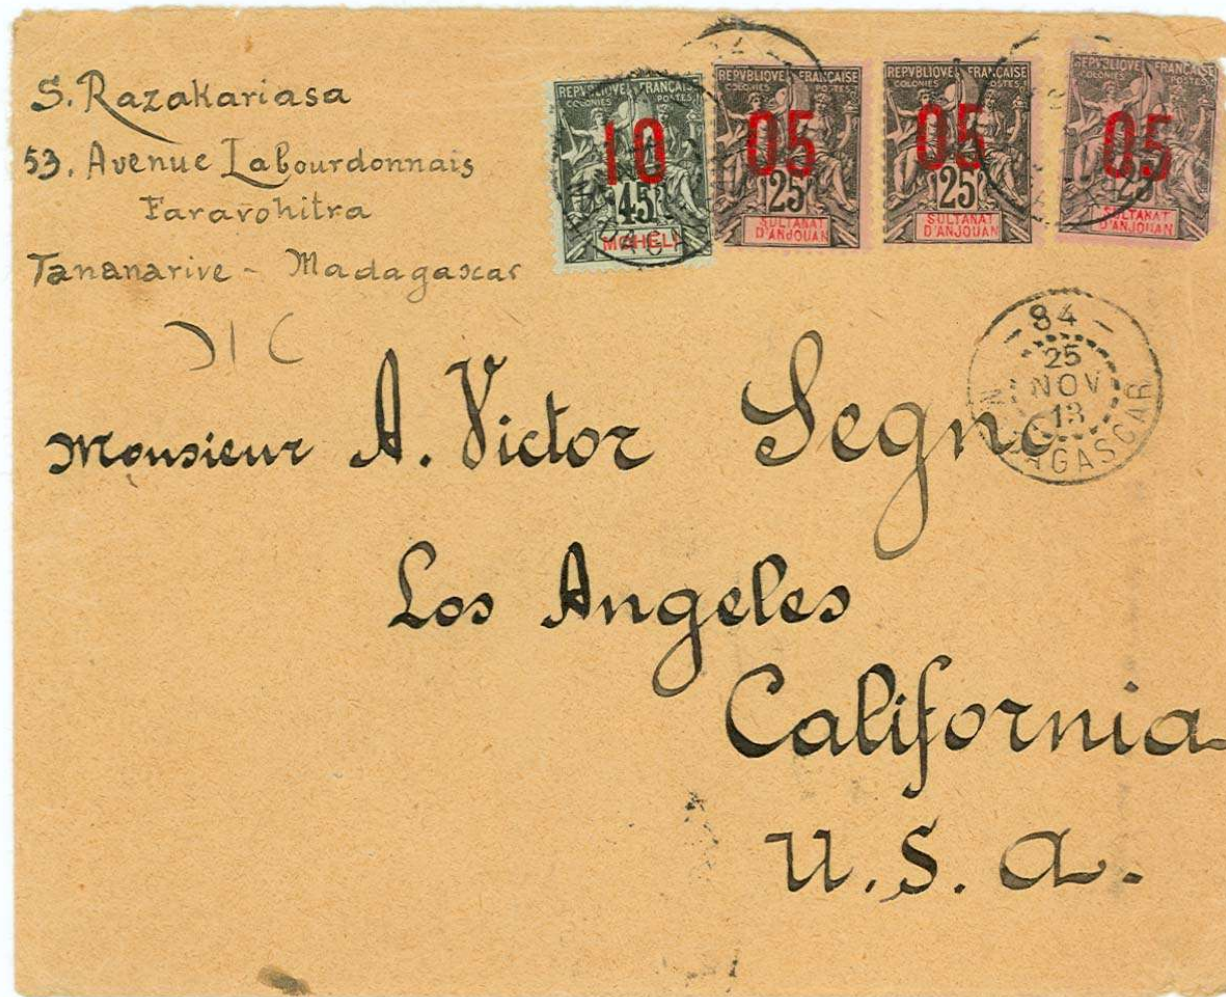 S. Razakariasa
53. Avenue Labourdonnais
Fararohitra
Tananarive - Madagascar
REPVBLIQVE FRANÇAISE
COLONIES POSTES
10
45
MOHELI
REPVBLIQVE FRANÇAISE
COLONIES POSTES
05
25
SULTANAT
D'ANJOUAN
REPVBLIQVE FRANÇAISE
COLONIES POSTES
05
25
SULTANAT
D'ANJOUAN
REPVBLIQVE FRANÇAISE
COLONIES POSTES
05
SULTANAT
D'ANJOUAN
- 84 -
25
NOV
13
Monsieur A. Victor Segno
Los Angeles
California
U.S.A.